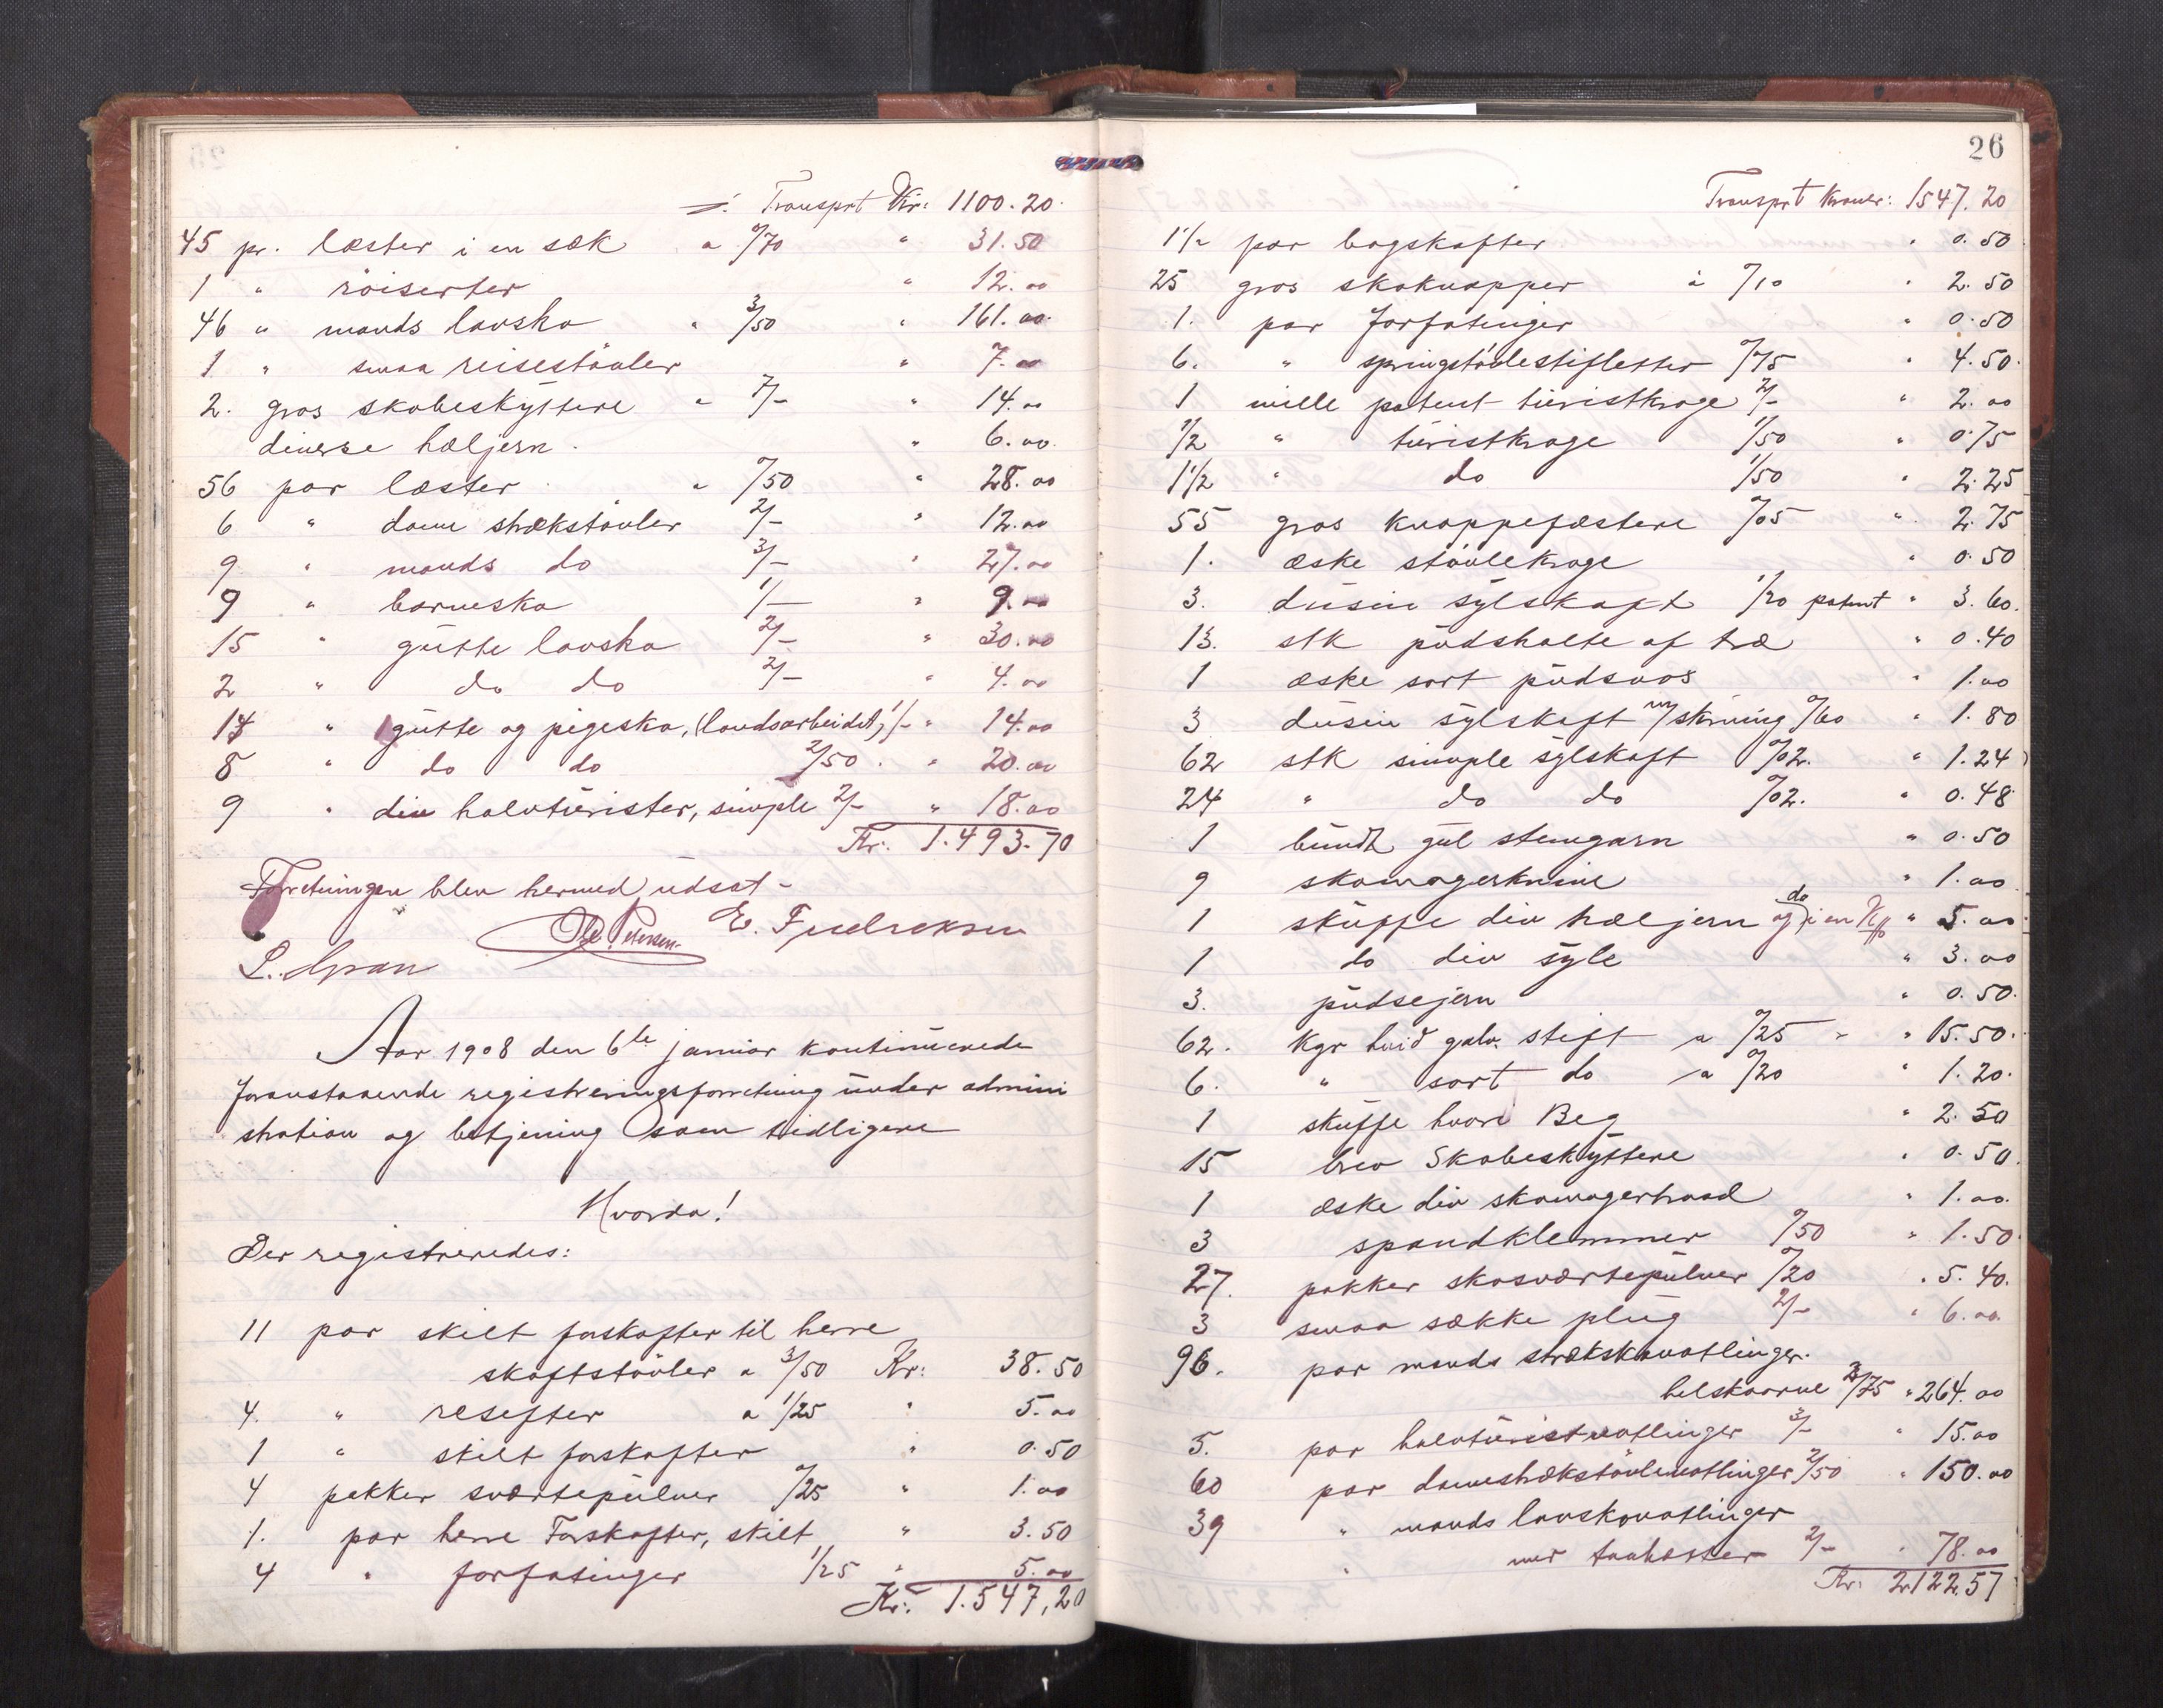 Transport Kr: 1100.20
45 pr. læster i en sæk a 0/70 " 31.50
1 " röiserter " 12.00
46 " mands lavsko " 3/50 " 161.00
1 " smaa reisestövler " 7.00
2. gros skobeskyttere " 7/- " 14.00
diverse hæljern. " 6.00
56 par læster " 0/50 " 28.00
6 " dame strækstövler 2/- " 12.00
9 " mands do 3/- " 27.00
9 " barnesko 1/- " 9.00
15 " gutte lavsko 2/- " 30.00
2 " do do 2/- " 4.00
14 " gutte og pigesko, (landsarbeidet) 1/- " 14.00
8 " do do 2/50. " 20.00
9 " div halvturister, simple 2/- " 18.00
Kr. 1.493.70
Forretningen blev hermed udsat -
Ol. Petersen. E. Fredriksen
L. Gran
Aar 1908 den 6te januar kontinuerede
foranstaaende registreringsforretning under admini
stration og betjening som tidligere
Hvorda!
Der registreredes:
11 par skilt forskafter til herre
skaftstövler a 3/50 Kr: 38.50
4. " resefter a 1/25 " 5.00
1 " skilt forskafter " 0.50
4 pakker sværtepulver 0/25 " 1.00
1. par herre Forskafter, skilt " 3.50
4 " forfatinger 1/25 " 5.00
Kr. 1.547,20
26
Transport Kroner: 1547.20
1 1/2 par bagskafter " 0.50
25 gros skoknapper à 0/10 " 2.50
1. par forfatinger " 0.50
6. " springstövlestifletter 0/75 " 4.50.
1 mille patent turistkroge 2/- " 2.00
1/2 " turistkroge 1/50 " 0.75
1 1/2 " do 1/50 " 2.25
55 gros knappefæstere 0/05 " 2.75
1. æske stövlekroge " 0.50
3. dusin sylskaft 1/20 patent " 3.60.
13. stk pudsholte af træ " 0.40
1 æske sort pudsvox " 1.00
3 dusin sylskaft m/skruing 0/60 " 1.80
62 stk simple sylskaft 0/02. " 1.24
24 " do do 0/02. " 0.48
1 bundt gul stengarn " 0.50
9 skomagerknive " 1.00
1 skuffe div hæljern og do i en " 5.00
1 do div syle " 3.00
3. pudsejern " 0.50.
62. kgr hvid galv. stift a 0/25 " 15.50.
6. " sort do a 0/20 " 1.20.
1 skuffe hvori Beg " 2.50
15 brev Skobeskyttere " 0.50.
1 æske div skomagertraad " 1.00.
3 spandklemmer 0/50 " 1.50
27. pakker skosværtepulver 0/20 " 5.40.
3 smaa sække plug 2/- " 6.00.
96. par mands strækskovatlinger.
helskaarne 2/75 " 264.00
5. par halvturistvatlinger 3/- " 15.00
60 par damestrækstövlevatlinger 2/50 " 150.00
39 " mands lavskovatlinger
" 2/- " 78.00
Kr: 2.122.57